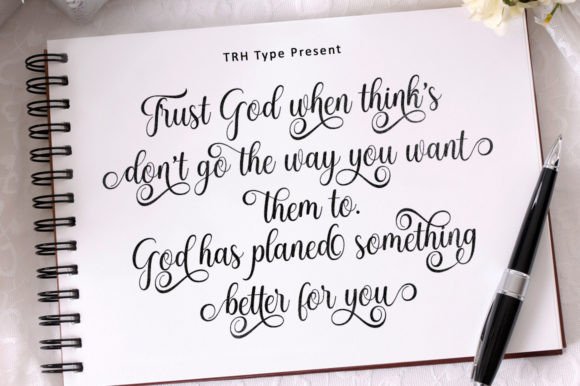 TRH Type Present
Trust God when think's
don't go the way you want
them to.
God has planed something
better for you